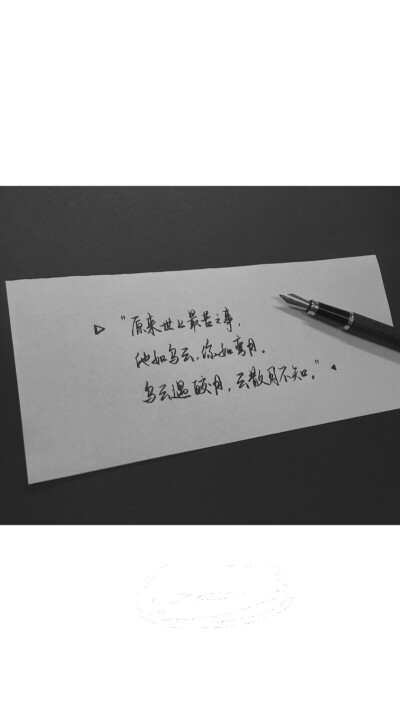 ▷ "原来世上最苦之事,
他如乌云,你如弯月。
乌云遇皎月,云散月不知。" ◂